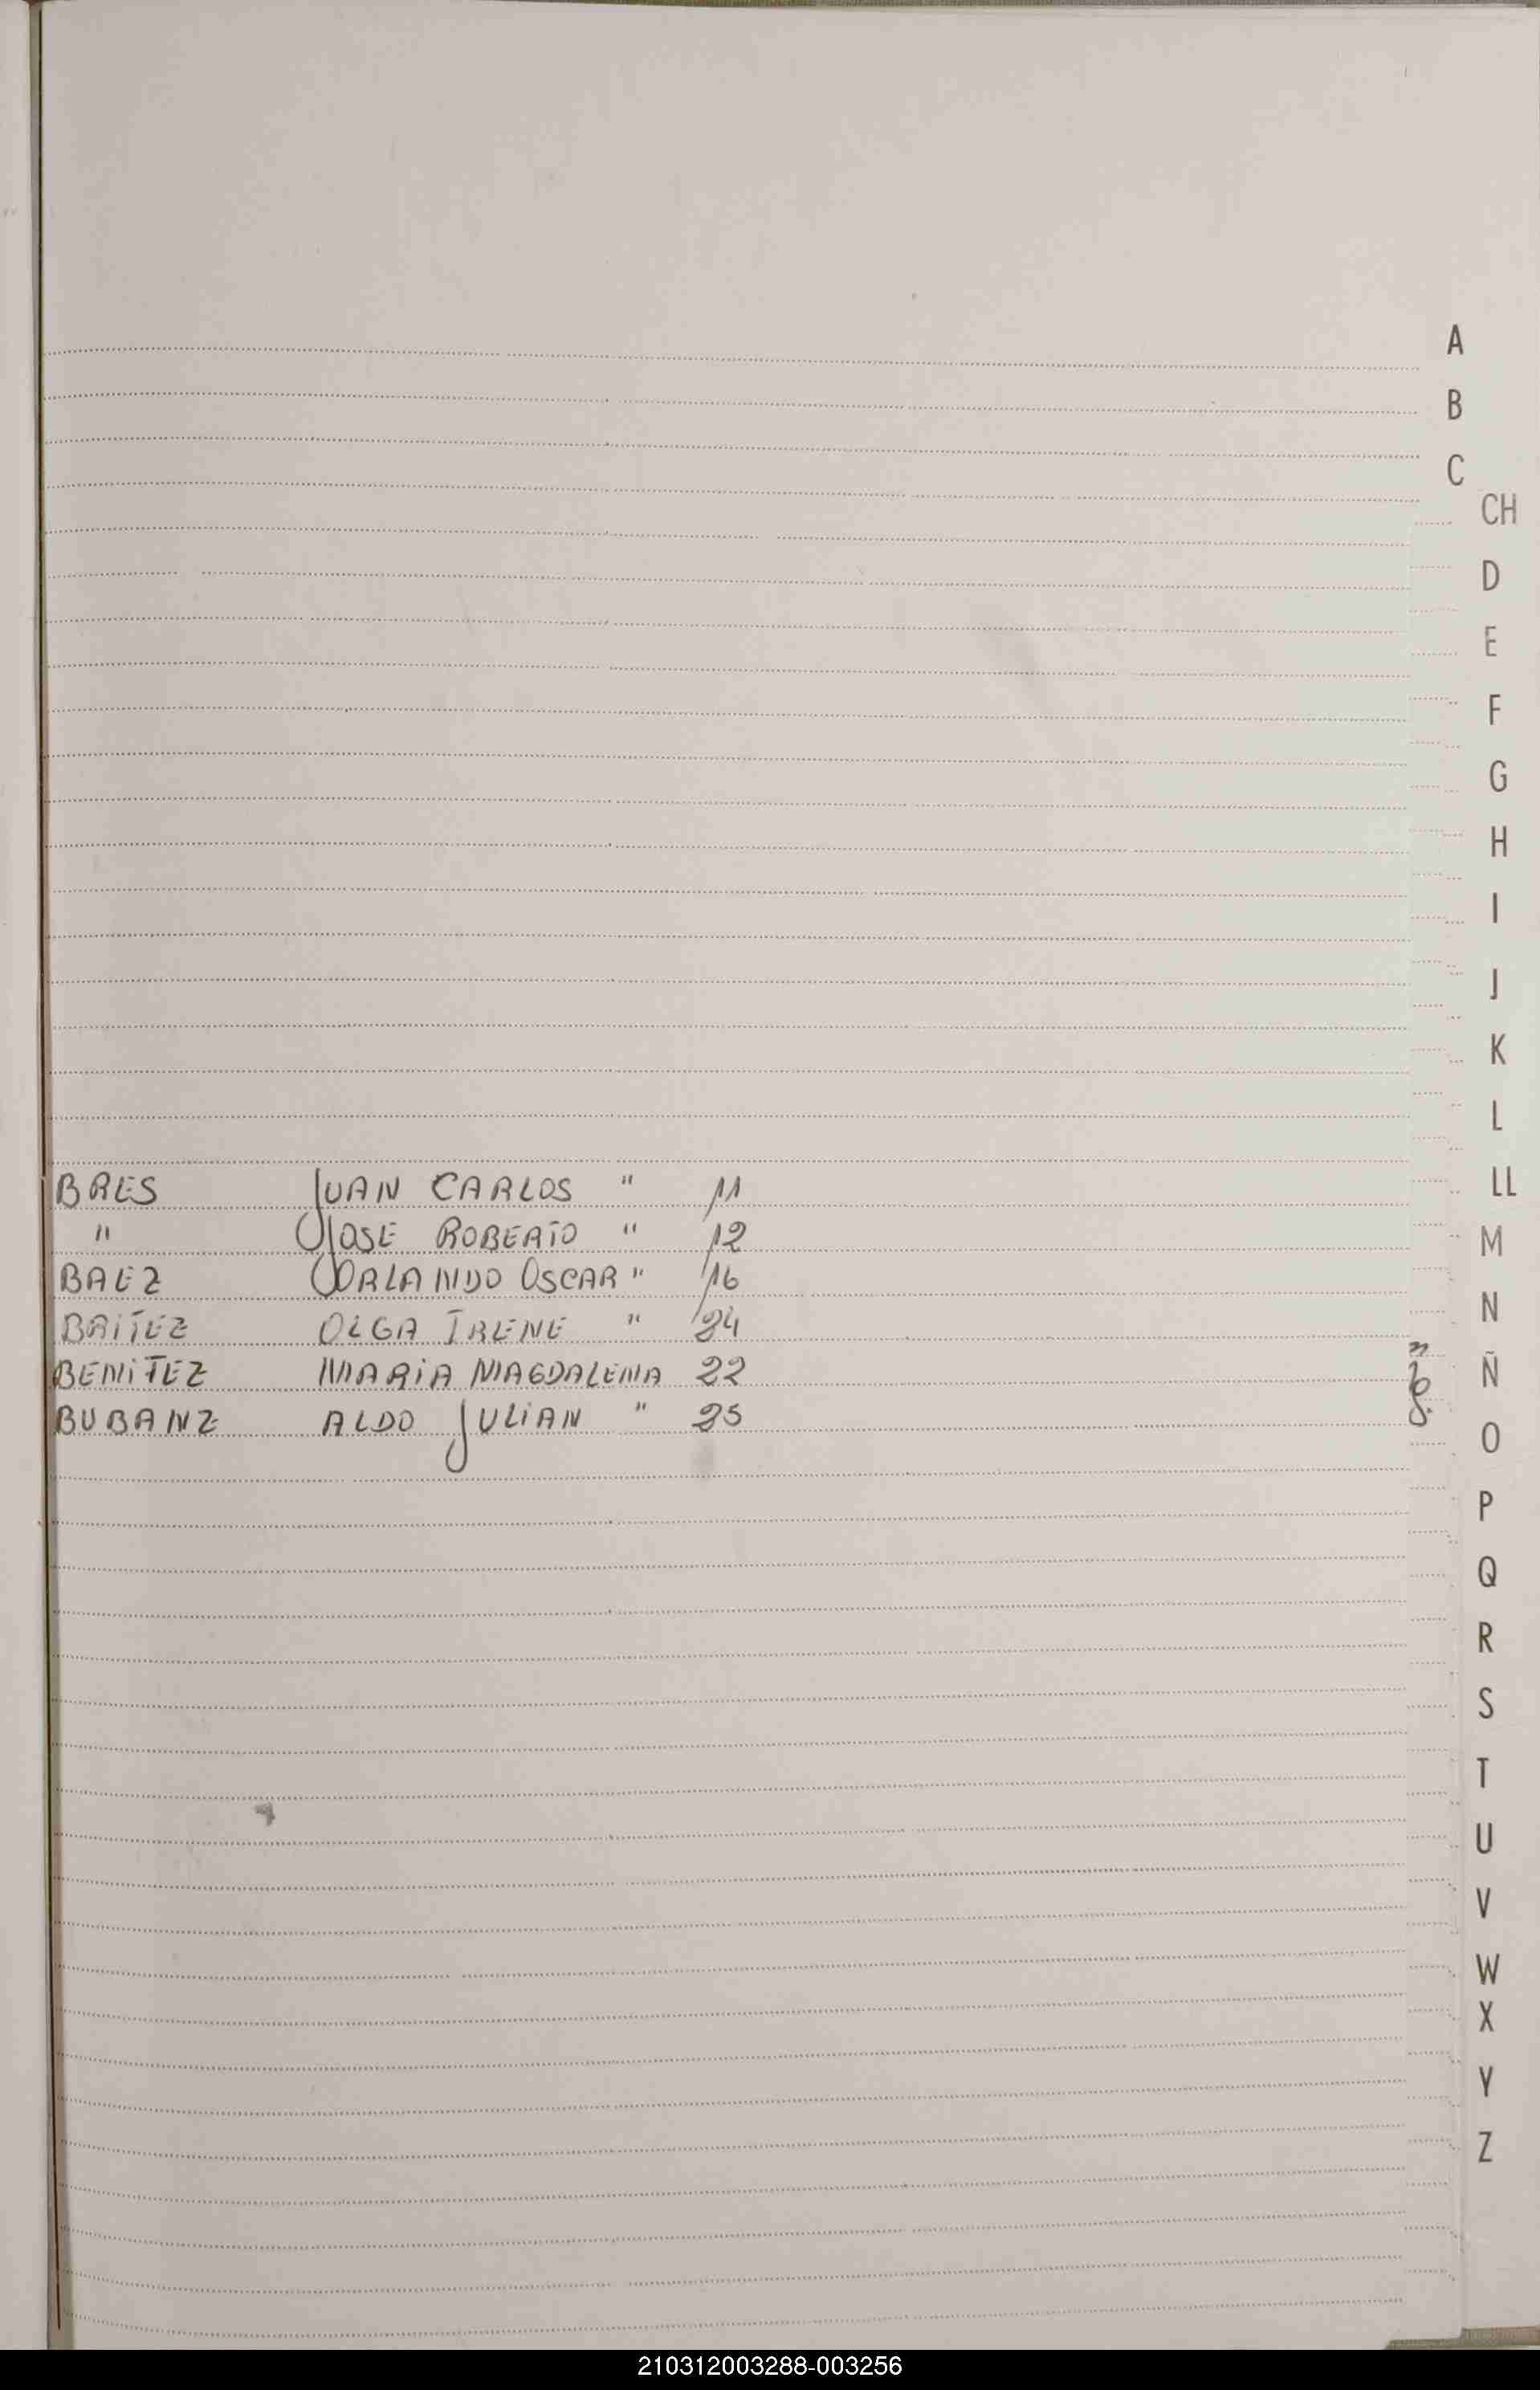 A
B
C
CH
D
E
F
G
H
I
J
K
L
BRES JUAN CARLOS " 11
LL
" JOSE ROBERTO " 12
M
BAEZ ORLANDO OSCAR " 16
N
BAITEZ OLGA IRENE " 24
BENITEZ MARIA MAGDALENA 22
Ñ
BUBANZ ALDO JULIAN " 25
O
P
Q
R
S
T
U
V
W
X
Y
Z
210312003288-003256